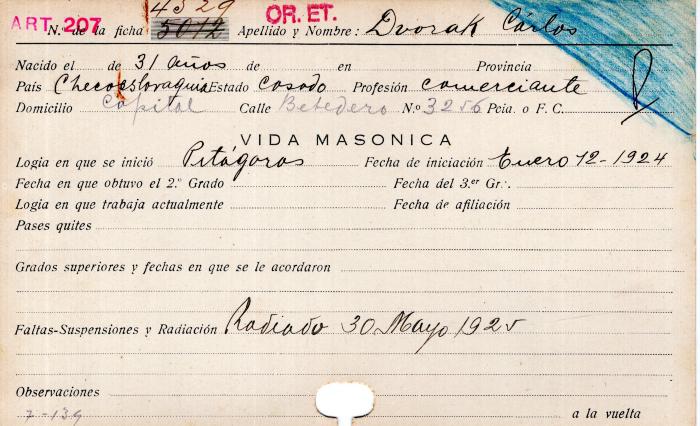 4329
ART. 207 OR. ET.
N.º de la ficha 5072 Apellido y Nombre: Dvorak Carlos
Nacido el de 31 años de en Provincia
País Checoeslovaquia Estado casado Profesión comerciante
Domicilio Capital Calle Bebedero N.º 3256 Pcia. o F. C.
VIDA MASONICA
Logia en que se inició Pitágoras Fecha de iniciación Enero 12-1924
Fecha en que obtuvo el 2.º Grado Fecha del 3.er Gr∴
Logia en que trabaja actualmente Fecha de afiliación
Pases quites
Grados superiores y fechas en que se le acordaron
Faltas-Suspensiones y Radiación Radiado 30 Mayo 1925
Observaciones
7-139 a la vuelta